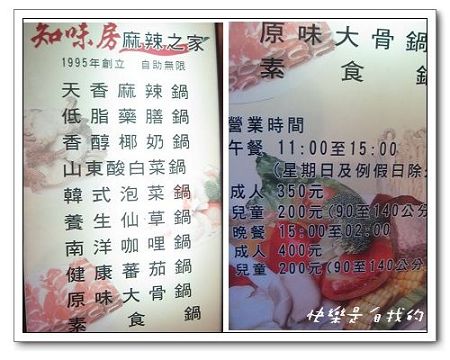 知味房麻辣之家
1995年創立 自助無限
天香麻辣鍋
低脂藥膳鍋
香醇椰奶鍋
山東酸白菜鍋
韓式泡菜鍋
養生仙草鍋
南洋咖哩鍋
健康蕃茄鍋
原味大骨鍋
素食鍋
原味大骨鍋
素食鍋
營業時間
午餐 11:00至15:00
(星期日及例假日除
成人 350元
兒童 200元(90至140公分
晚餐 15:00至02:00
成人 400元
兒童 200元(90至140公分
快樂是自找的